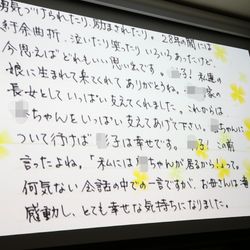 勇気づけられたり、励まされたり。28年の間には
紆余曲折、泣いたり笑ったりいろいろあったけど、
今思えばどれもいい思い出です。 子! 私達の
娘に生まれて来てくれてありがとうね。 家の
長女としていっぱい支えてくれました。これからは
ちゃんをいっぱい支えてあげて下さい。
ついて行けば 子は幸せです。 子! この前
言ったよね。「私には ちゃんが居るから!」って。
何気ない会話の中での一言ですが、お母さんは
感動し、とても幸せな気持ちになりました。